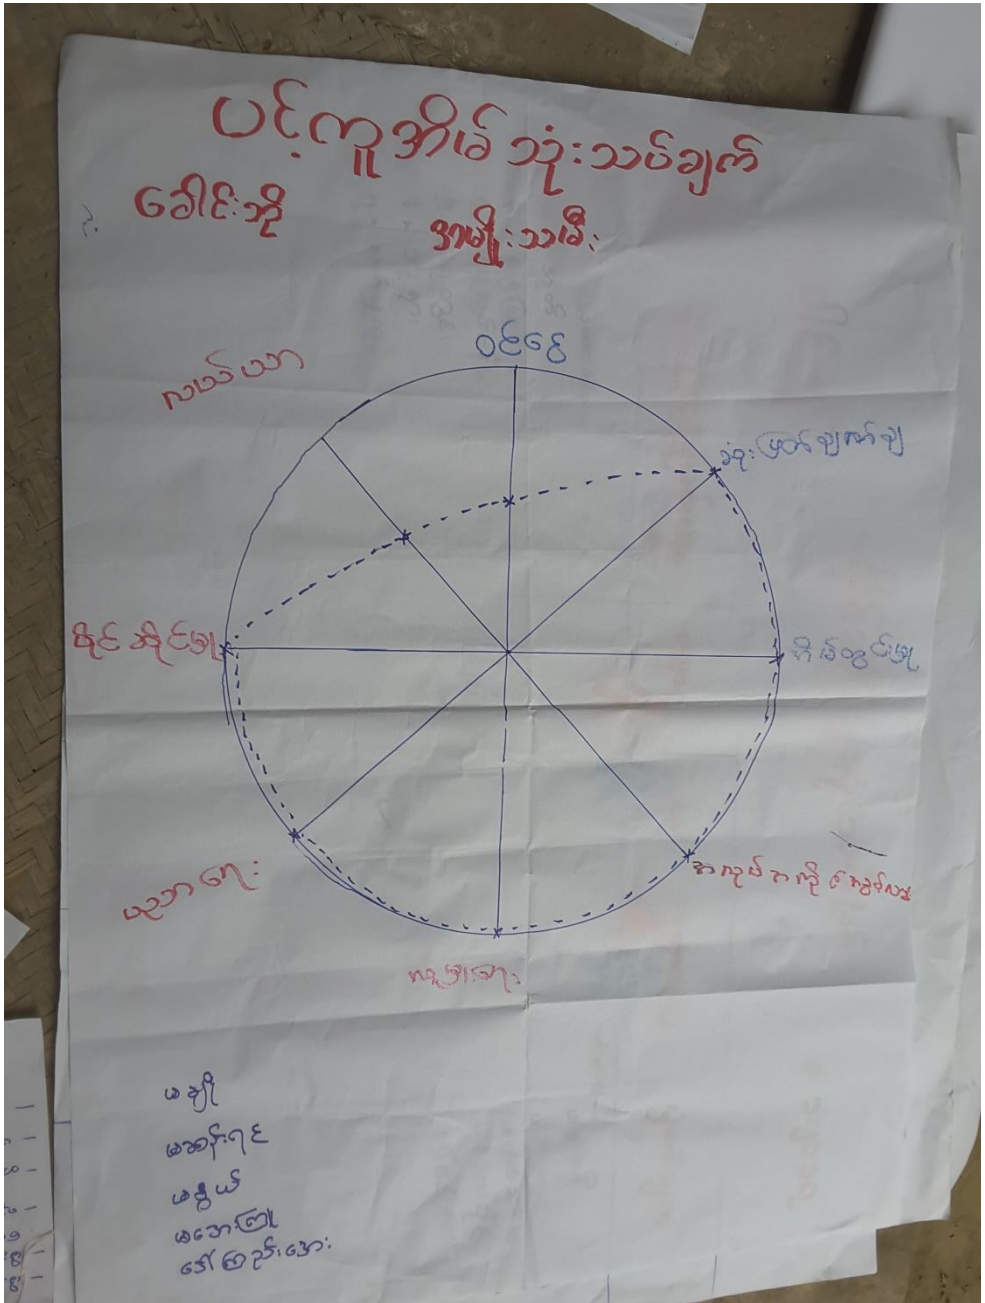 ပင့်ကူအိမ်သုံးသပ်ချက်
ခေါင်းဘို
အမျိုးသမီး
ဝင်ငွေ
လယ်ယာ
ဆုံးဖြတ်ချက်ချ
ပိုင်ဆိုင်မှု
အိမ်တွင်းမှု
ပညာရေး
အလုပ်အကိုင်အခွင့်လမ်
လူမှုရေး
မချို
မဆန်းရင်
မနွယ်
မအေးကြူ
ဒေါ်ကြည်အေး